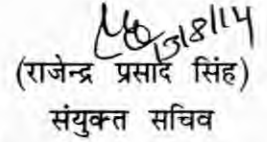 13/8/14
(राजेन्द्र प्रसाद सिंह)
संयुक्त सचिव